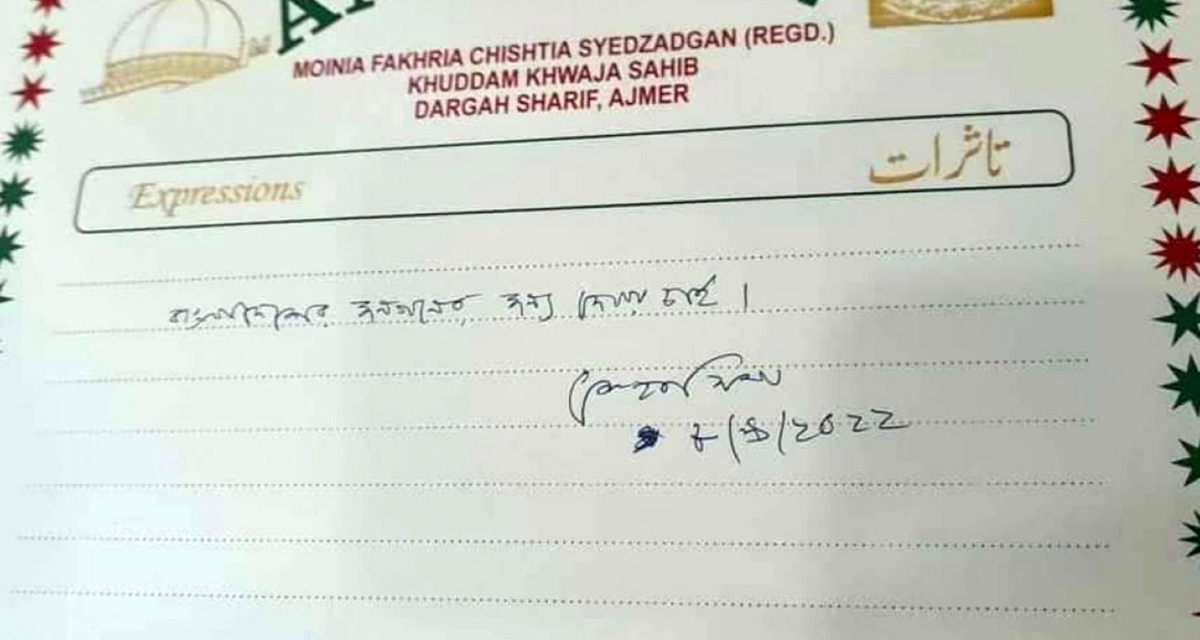 MOINIA FAKHRIA CHISHTIA SYEDZADGAN (REGD.)
KHUDDAM KHWAJA SAHIB
DARGAH SHARIF, AJMER
Expressions
تاثرات
বাংলাদেশের জনগণের জন্য দোয়া চাই।